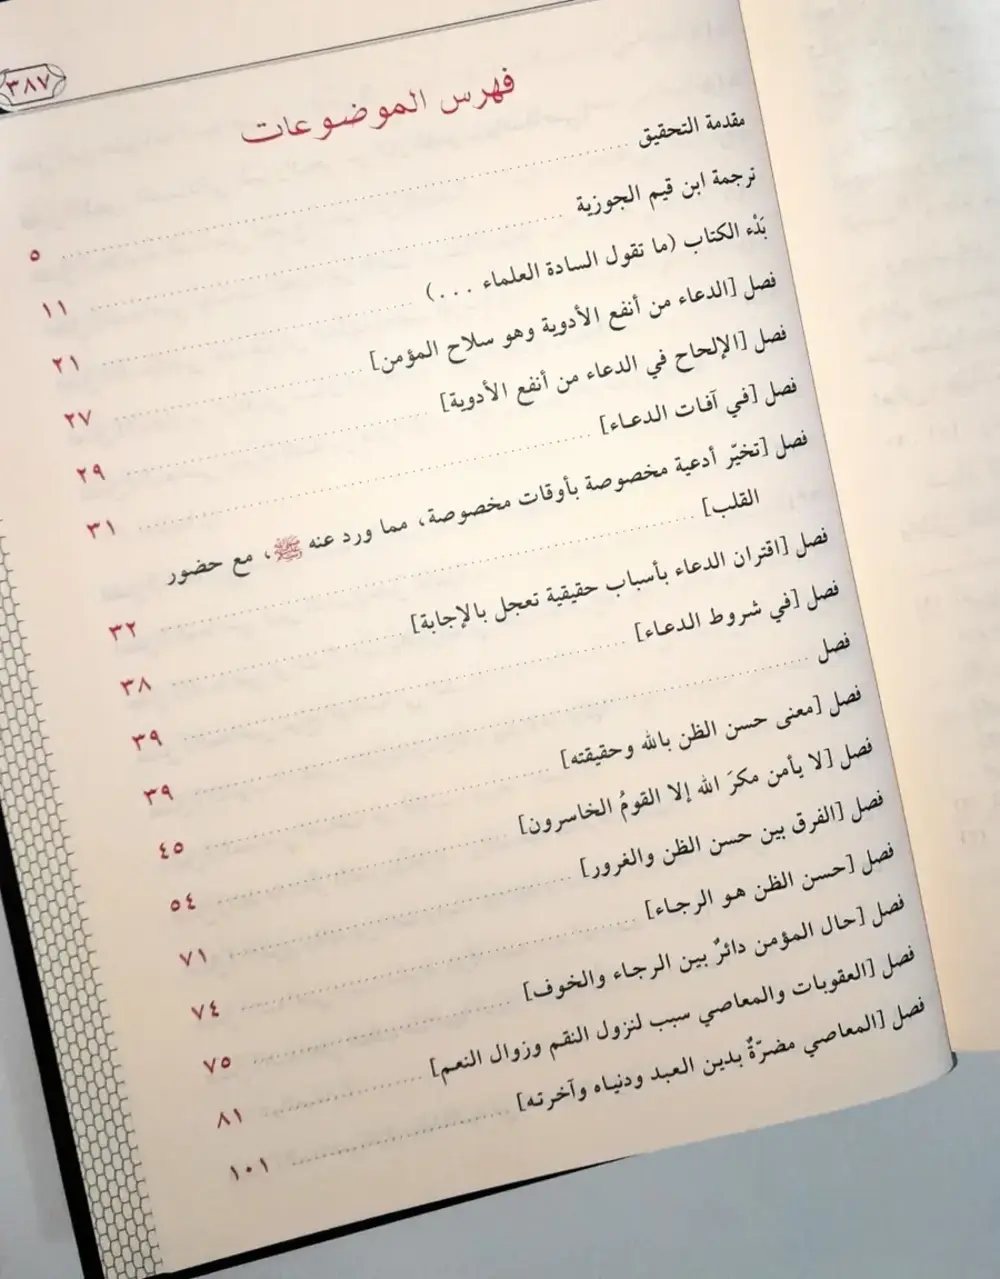 ٣٨٧
فهرس الموضوعات
مقدمة التحقيق ..... ٥
ترجمة ابن قيم الجوزية ..... ١١
بَدْء الكتاب (ما تقول السادة العلماء . . .) ..... ٢١
فصل [الدعاء من أنفع الأدوية وهو سلاح المؤمن] ..... ٢٧
فصل [الإلحاح في الدعاء من أنفع الأدوية] ..... ٢٩
فصل [في آفات الدعاء] ..... ٣١
فصل [تخيّر أدعية مخصوصة بأوقات مخصوصة، مما ورد عنه ﷺ، مع حضور
القلب] ..... ٣٢
فصل [اقتران الدعاء بأسباب حقيقية تعجل بالإجابة] ..... ٣٨
فصل [في شروط الدعاء] ..... ٣٩
فصل ..... ٣٩
فصل [معنى حسن الظن بالله وحقيقته] ..... ٤٥
فصل [لا يأمن مكرَ الله إلا القومُ الخاسرون] ..... ٥٤
فصل [الفرق بين حسن الظن والغرور] ..... ٧١
فصل [حسن الظن هو الرجاء] ..... ٧٤
فصل [حال المؤمن دائرٌ بين الرجاء والخوف] ..... ٧٥
فصل [العقوبات والمعاصي سبب لنزول النقم وزوال النعم] ..... ٨١
فصل [المعاصي مضرّةٌ بدين العبد ودنياه وآخرته] ..... ١٠١